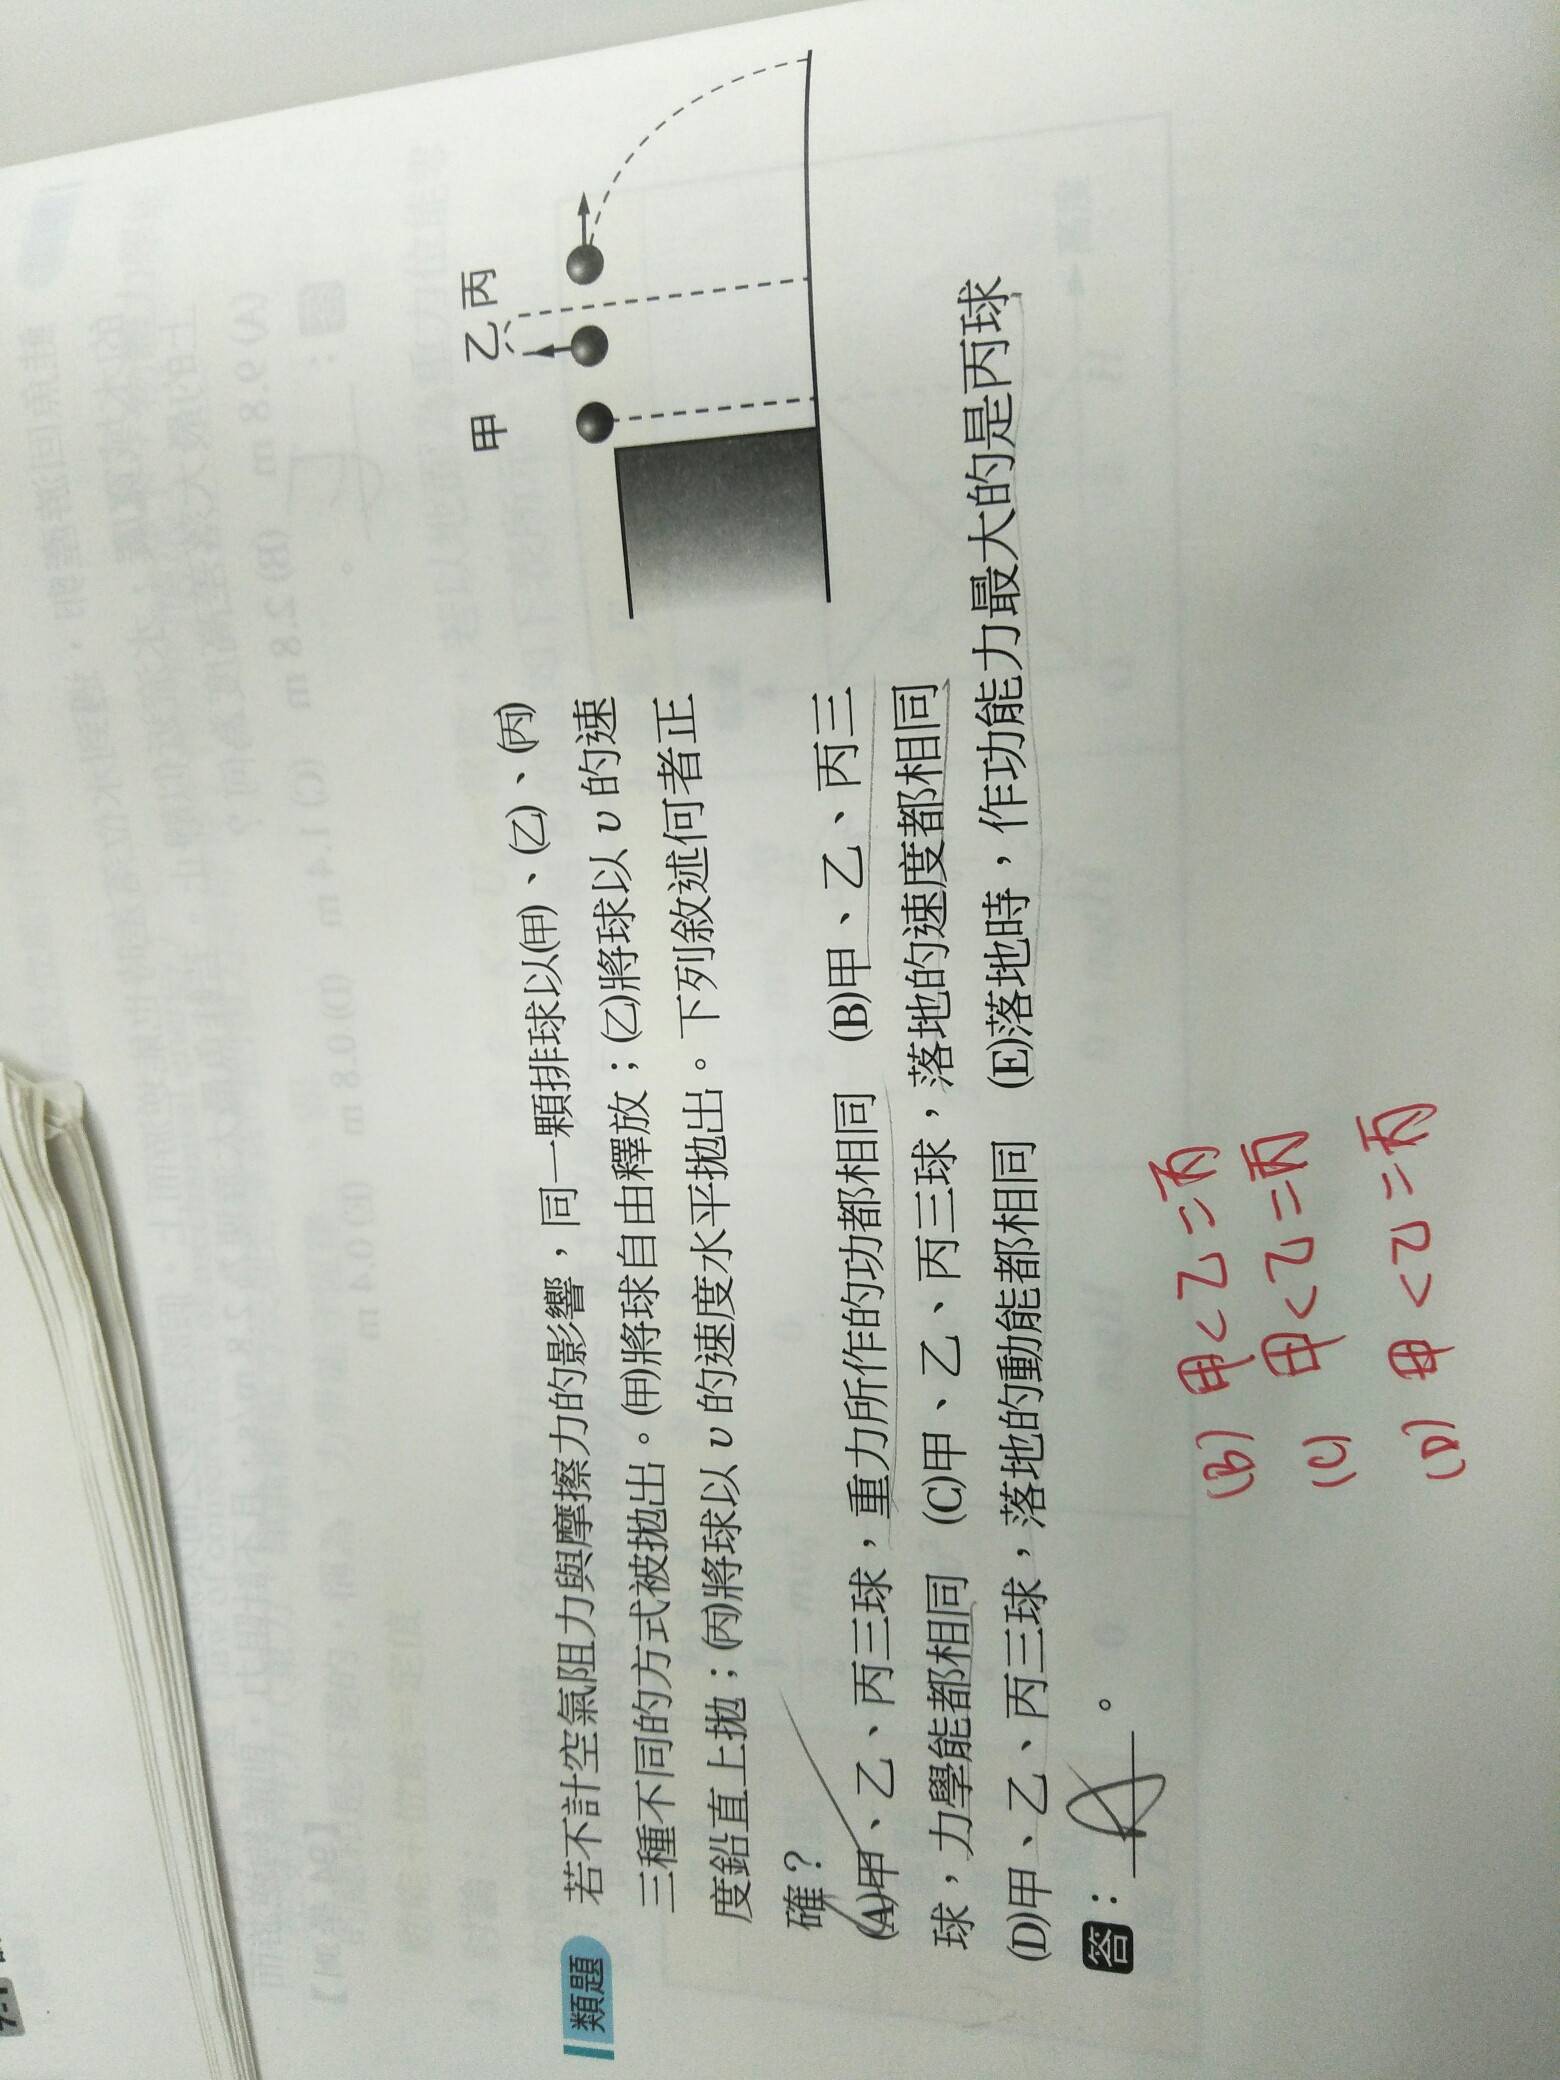 類題
若不計空氣阻力與摩擦力的影響，同一顆排球以(甲)、(乙)、(丙)
三種不同的方式被拋出。(甲)將球自由釋放；(乙)將球以 υ 的速
度鉛直上拋；(丙)將球以 υ 的速度水平拋出。下列敘述何者正
確？
(A)甲、乙、丙三球，重力所作的功都相同　(B)甲、乙、丙三
球，力學能都相同　(C)甲、乙、丙三球，落地的速度都相同
(D)甲、乙、丙三球，落地的動能都相同　(E)落地時，作功能力最大的是丙球
答：A。
甲 乙 丙
(B) 甲<乙=丙
(C) 甲<乙=丙
(D) 甲<乙=丙